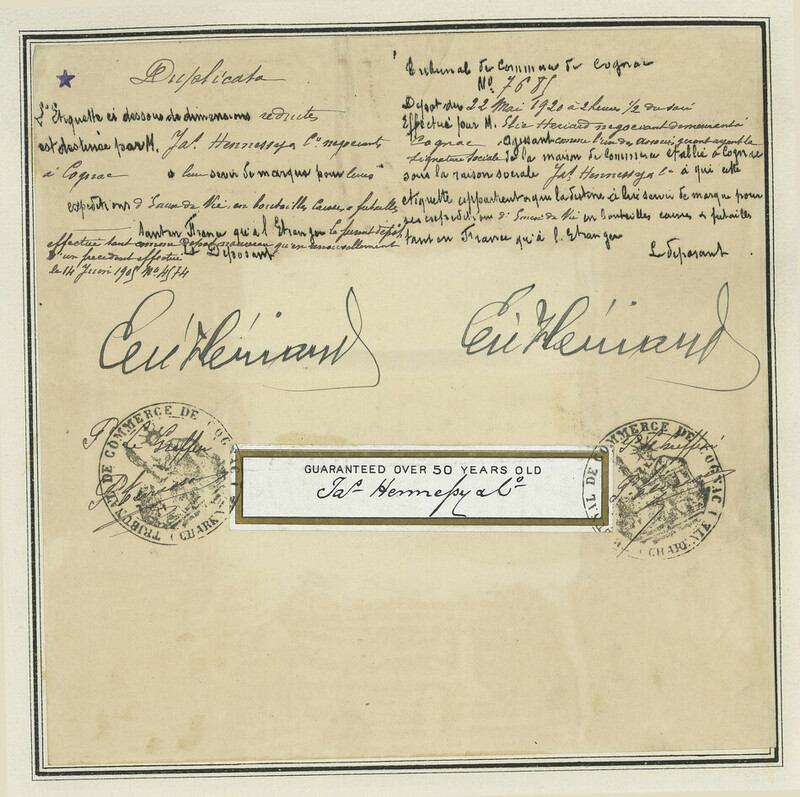 Duplicata
L'Etiquette ci dessous de dimensions réduites
est destinée par M. Jas Hennessy & Co négociants
à Cognac à leur servir de marque pour leurs
expéditions d'Eaux de Vie en bouteilles caisses & futailles
tant en France qu'à l'Etranger le présent dépôt
effectué tant comme dépôt nouveau qu'en renouvellement
d'un précédent effectué Le Déposant
le 14 Juin 1905 No 4574
Elie Hériard
Tribunal de Commerce de Cognac
No 7685
Dépot du 22 Mai 1920 à 2 heures 1/2 du soir
Effectué par M. Elie Hériard négociant demeurant à
Cognac agissant comme l'un des associés gérant ayant la
signature sociale de la maison de commerce établie à Cognac
sous la raison sociale Jas Hennessy & Co à qui cette
étiquette appartient & qui la destine à lui servir de marque pour
ses expéditions d'Eaux de Vie en bouteilles caisses & futailles
tant en France qu'à l'Etranger
Le déposant
Elie Hériard
TRIBUNAL DE COMMERCE DE COGNAC (CHARENTE)
GUARANTEED OVER 50 YEARS OLD
Jas Hennessy & Co
TRIBUNAL DE COMMERCE DE COGNAC (CHARENTE)